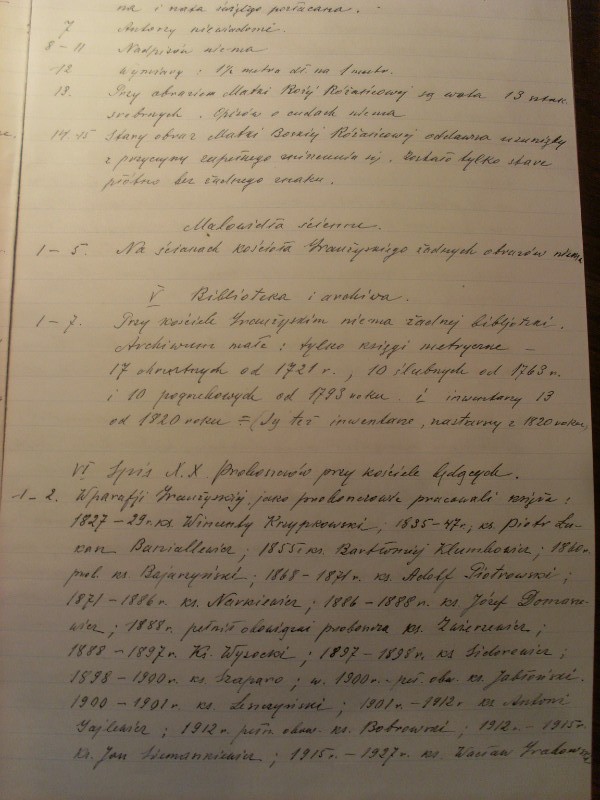 na i nafta świętego portucana.
7 Autorzy niewiadomi.
8 – 11 Nadpisów niema
12 Wymiary: 1½ metra dł. na 1 metr.
13. Przy obrazie Matki Bożej Różańcowej są wota 13 sztuk
srebrnych. Opisów o cudach niema
14. 15 Stary obraz Matki Boskiej Różańcowej oddawna usunięty
z przyczyny zupełnego zniszczenia się. Zostało tylko stare
płótno bez żadnego znaku.
Malowidła ścienne.
1 – 5. Na ścianach kościoła żadnych obrazów niema
V Biblioteka i archiwa.
1 – 7. Przy kościele niema żadnej bibljoteki.
Archiwum małe: tylko księgi metryczne –
17 chrzestnych od 1721 r., 10 ślubnych od 1763 r.
i 10 pogrzebowych od 1793 roku. i inwentarzy 13
od 1820 roku = (Są też inwentarze, nastarszy z 1820 roku)
VI Spis X.X. Proboszczów przy kościele będących.
1 – 2. W parafji jako proboszczowie pracowali księża:
1827 – 29 r. ks. Wincenty Krzypkowski; 1835 – 47 r.; ks. Piotr Łu-
kasz ; 1855 i ks. Bartłomiej Klumbowicz; 1860 r.
ks. Bajarzyński; 1868 – 1871 r. ks. Adolf Piotrowski;
1871 – 1886 r. ks. Narkiewicz; 1886 – 1888 r. ks. Józef Domara-
wicz; 1888 r. pełnił obowiązki proboszcza ks. ;
1888 – 1897 r. Ks. Wysocki; 1897 – 1898 r. ks. Sidorowicz;
1898 – 1900 r. ks. Szaparo; w. 1900 r. – peł. obw. ks. Jabłoński.
1900 – 1901 r. ks. Leszczyński; 1901 r. – 1912 r. ks Antoni
Gajlewicz; 1912 r. pełn. obow. ks. Bobrowski; 1912 r. – 1915 r.
ks. Jan Siemaszkiewicz; 1915 r. – 1927 r. ks. Wacław